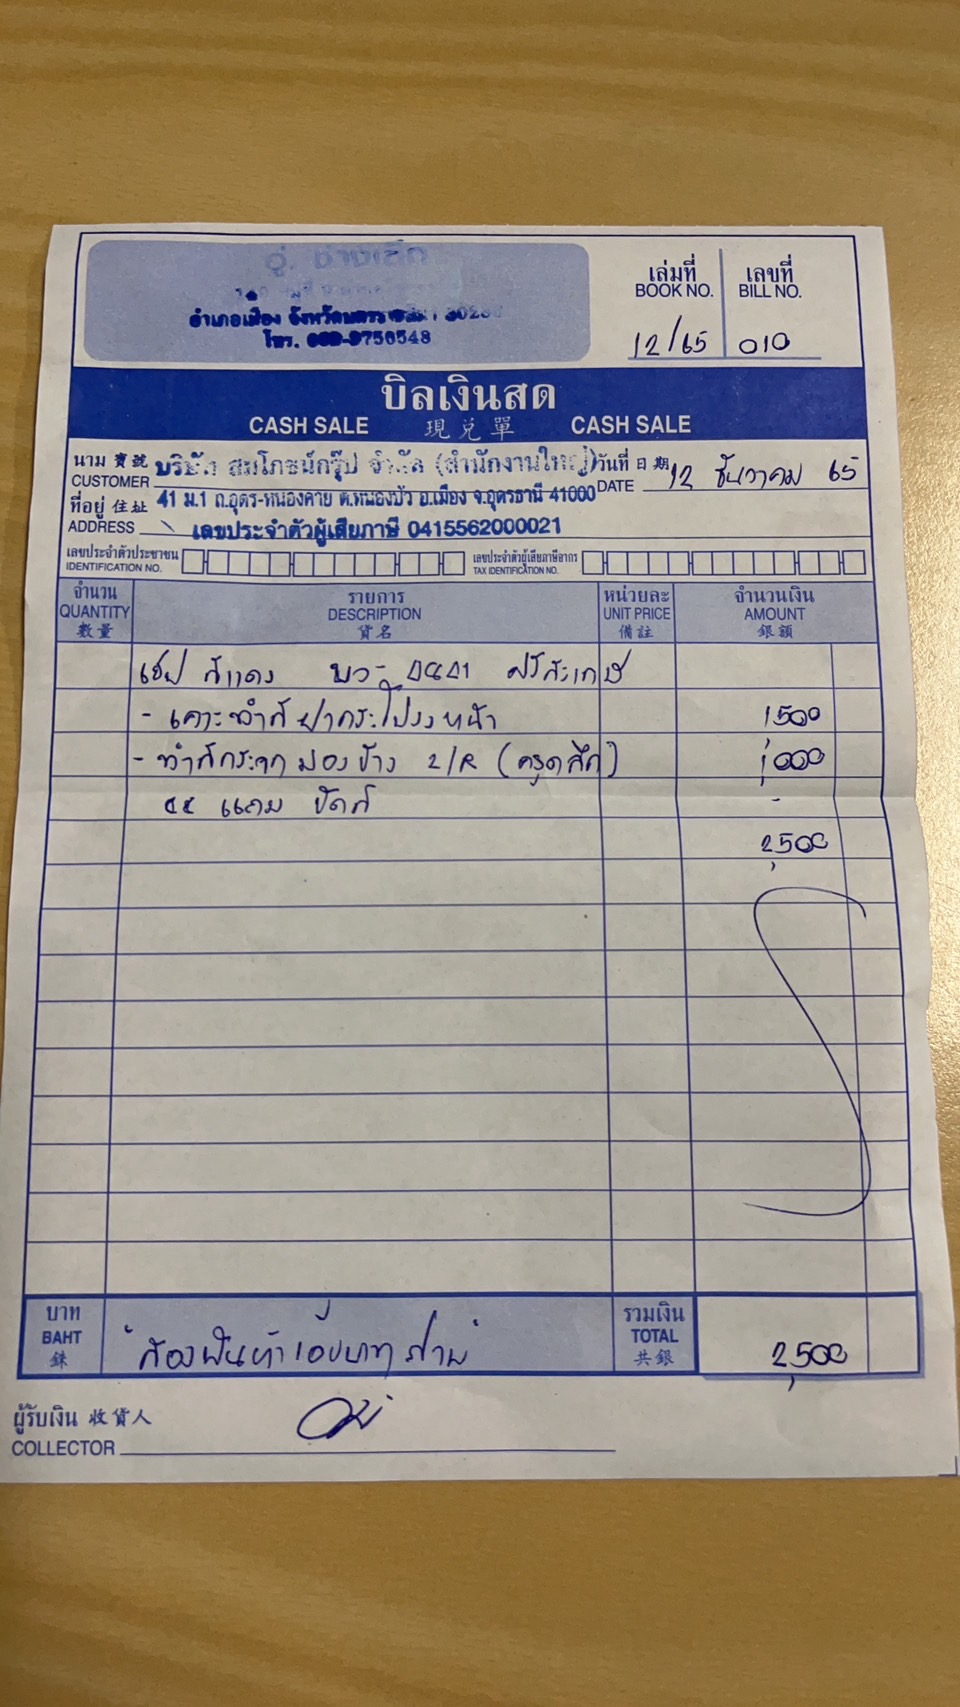 เล่มที่ เลขที่
BOOK NO. BILL NO.
12/65 010
อำเภอเมือง จังหวัดนครราชสีมา
โทร.
บิลเงินสด
CASH SALE 現兌單 CASH SALE
นาม 寶號 บริษัท สหโภชน์กรุ๊ป จำกัด (สำนักงานใหญ่) วันที่ 日期 12 ธันวาคม 65
CUSTOMER DATE
ที่อยู่ 住址 41 ม.1 ถ.อุดร-หนองคาย ต.หนองบัว อ.เมือง จ.อุดรธานี 41000
ADDRESS เลขประจำตัวผู้เสียภาษี 0415562000021
เลขประจำตัวประชาชน เลขประจำตัวผู้เสียภาษีอากร
IDENTIFICATION NO. TAX IDENTIFICATION NO.
จำนวน รายการ หน่วยละ จำนวนเงิน
QUANTITY DESCRIPTION UNIT PRICE AMOUNT
數量 貨名 備註 銀額
สีแดง ศรีสะเกษ
- เคาะทำสีฝากระโปรงหน้า 1,500
- ทำสีกระจกมองข้าง L/R (ครูดลึก) 1,000
แถม ขัดสี -
2,500
บาท รวมเงิน
BAHT สองพันห้าร้อยบาทถ้วน TOTAL 2,500
銖 共銀
ผู้รับเงิน 收貨人
COLLECTOR